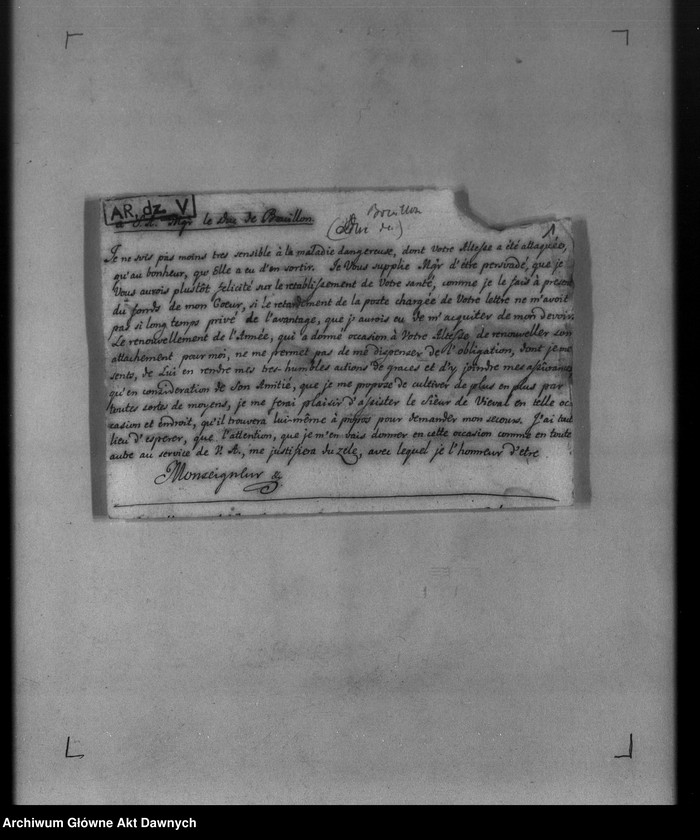 AR, dz. V
a S. A. Mgr le Duc de Bouillon.
Bouillon
(Duc de)
1
Je ne suis pas moins tres sensible à la maladie dangereuse, dont Votre Altesse a été attaquée,
qu'au bonheur, qu'Elle a eu d'en sortir. Je Vous supplie Mgr d'être persuadé, que je
Vous aurois plustôt felicité sur le retablissement de Votre santé, comme je le fais à present
du fonds de mon Coeur, si le retardement de la poste chargée de Votre lettre ne m'avoit
pas si long temps privé de l'avantage, que j'aurois eu de m'acquiter de mon devoir.
Le renouvellement de l'Année, qui a donné occasion à Votre Altesse de renouveller son
attachement pour moi, ne me permet pas de me dispenser de l'obligation, dont je me
sents, de Lui en rendre mes tres-humbles actions de graces et d'y joindre mes assurances
qu'en consideration de Son Amitié, que je me propose de cultiver de plus en plus par
toutes sortes de moyens, je me ferai plaisir d'assister le Sieur de Vieval en telle oc
casion et endroit, qu'il trouvera lui-même à propos pour demander mon secours. J'ai tout
lieu d'esperer, que l'attention, que je m'en vais donner en cette occasion comme en toute
autre au service de V. A., me justifiera du zele, avec lequel je l'honneur d'être
Monseigneur &c
Archiwum Główne Akt Dawnych